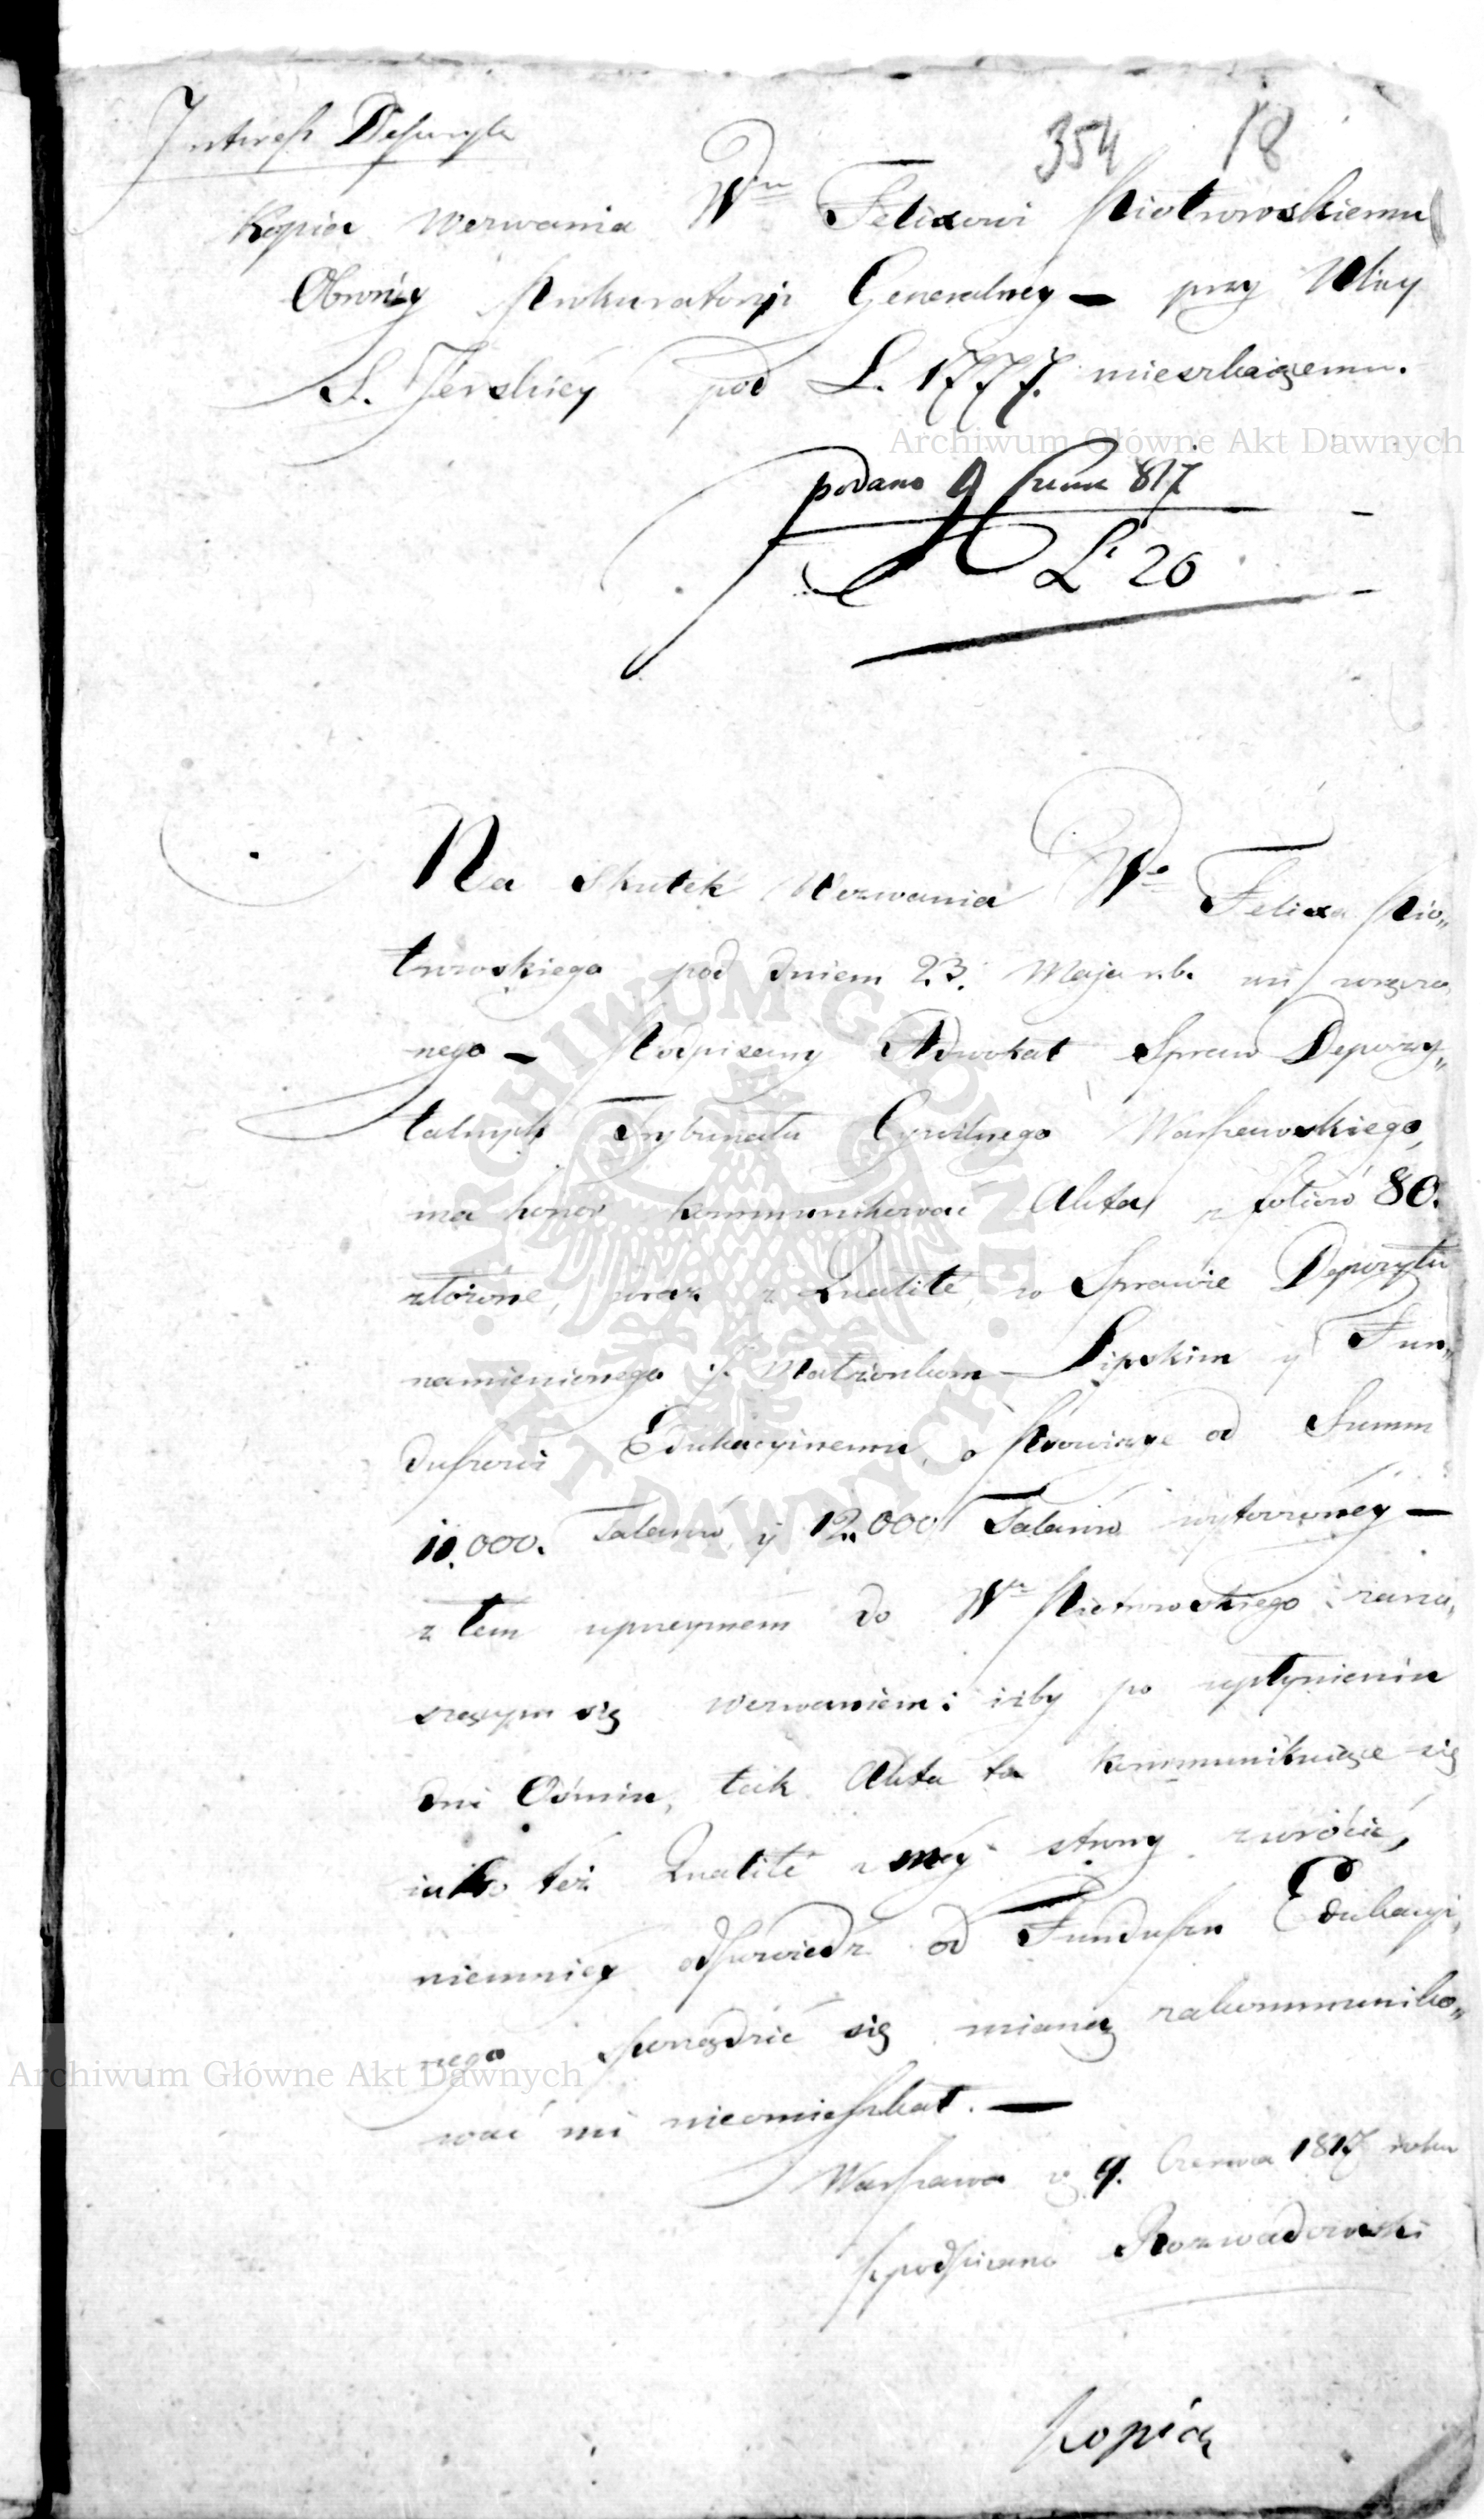 Interess Depozytu
354 18
Kopia Wezwania Wmu Felixowi Piotrowskiemu
Obrońcy Prokuratoryi Generalney — przy Ulicy
S. Jerskiéy pod L. 1777. mieszkaiącemu.
Archiwum Główne Akt Dawnych
podano 9 Czerw 817
L. 20
Na skutek Wezwania Wo Felixa Pio„
trowskiego pod dniem 23. Maja r.b. mi wręczo„
nego — Podpisany Adwokat Spraw Depozy„
talnych Trybunału Cywilnego Warszawskiego,
ma honor kommunikować Akta z foliów 80.
złożone, wraz z Kwalite, w Sprawie Depozytu
namienionego Małżonkom Lipskim y Fun„
duszowi Edukacyinemu, o Prowizye od Summ
10,000. Talarów y 12,000 Talarów wytoczonéy —
z tem uprzeymem do Wo Piotrowskiego zana„
szaącym się wezwaniem: iżby po upłynieniu
dni Ośmiu, tak Akta te kommunikuiące się
iako też Kwalite z mey strony zwrócić,
niemniey odpowiedź od Funduszu Edukacyi„
nego sporządzić się mianą zakommuniko„
wać mi nieomieszkał. —
Warszawa d 9. Czerwca 1817 roku
podpisano Rozwadowski
Kopia
ARCHIWUM GŁÓWNE AKT DAWNYCH
Archiwum Główne Akt Dawnych